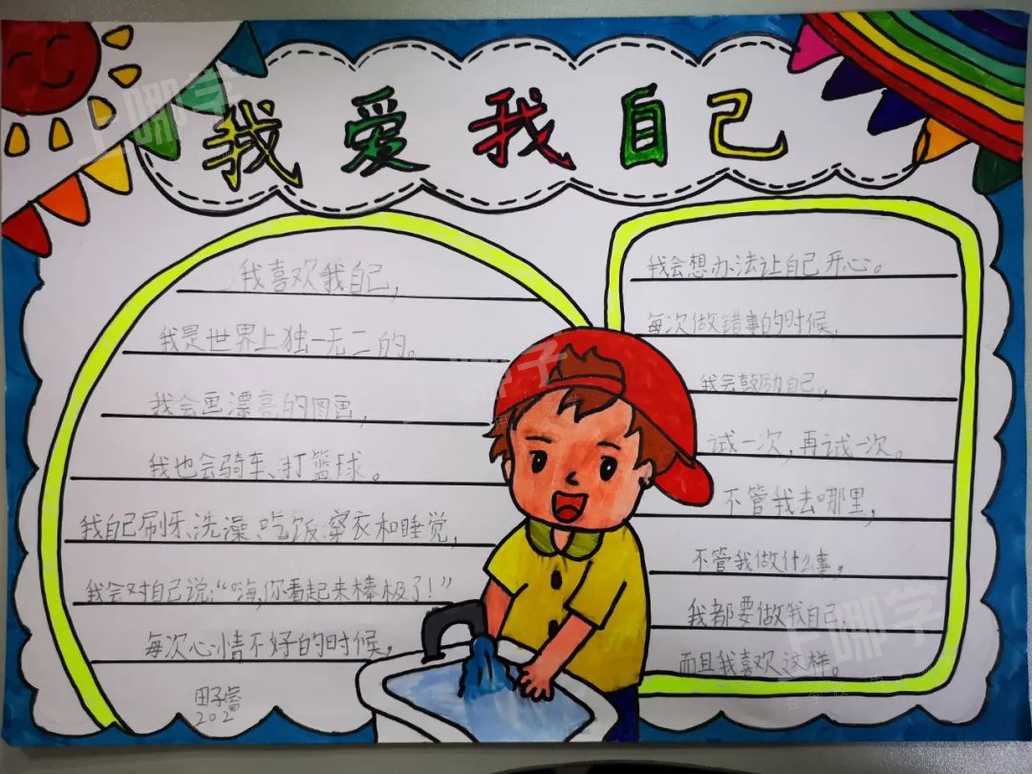 我爱我自己
我喜欢我自己,
我是世界上独一无二的。
我会画漂亮的图画,
我也会骑车、打篮球。
我自己刷牙、洗澡、吃饭、穿衣和睡觉,
我会对自己说:“嗨,你看起来棒极了!”
每次心情不好的时候,
田子
202
我会想办法让自己开心。
每次做错事的时候,
我会鼓励自己,
试一次,再试一次。
不管我去哪里,
不管我做什么事,
我都要做我自己,
而且我喜欢这样。
上哪学